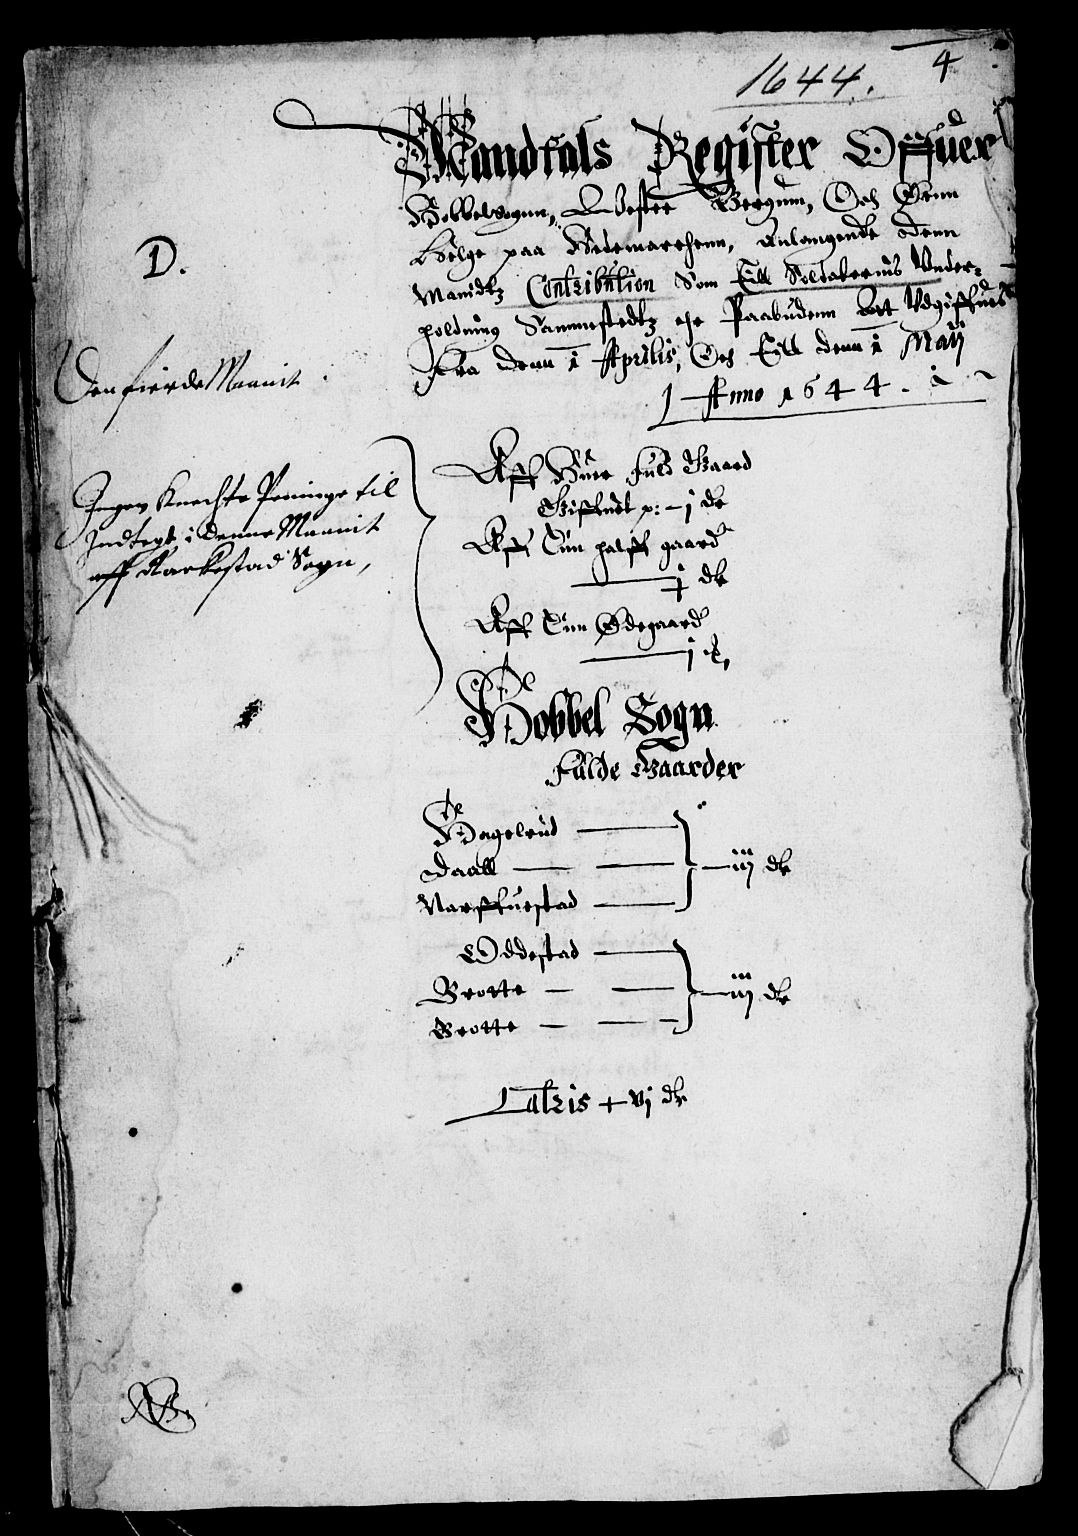 1644.
4
Mandtals Register Offuer
Hobbelsognn, Vester Bergum, Och Grnn
Helge paa Hedemarchenn, Anlangende denn
Manidtz Contribution Som Till Soldaternis Under-
holdning Sammestedtz ehr Paabudenn Att Udgiffues
Fra denn i Aprilis, Och Till denn i Maij
Anno 1644.
D.
Den fierde Maanit
Ingen Knechte Peninge til
Indtegt i denne Maanit
aff Aarkestad Sogn,
Aff Huer fuld Gaard
Giffuet p: – j dr
Aff Enn halff gaard
j dr
Aff Enn Ødegaard
j
Hobbel Sogn
Fulde Gaarder
Hagelrud
Daall – iij dr
Narffuestad
Oddestad
Brotte – iij dr
Brotte
Latris + vj dr